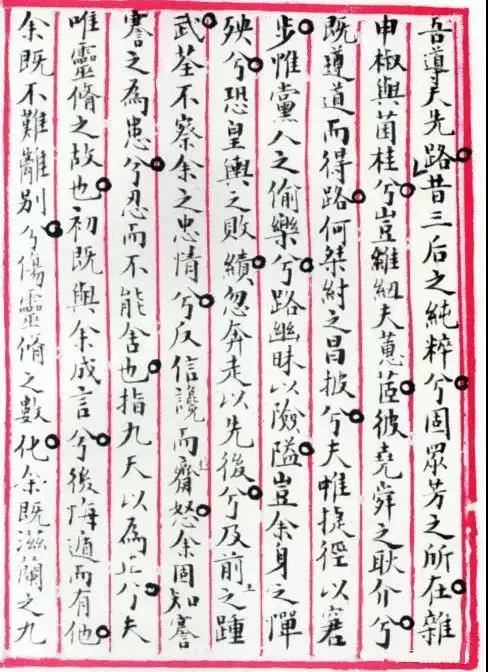 吾導夫先路昔三后之純粹兮固眾芳之所在雜
申椒與菌桂兮豈維紉夫蕙茝彼堯舜之耿介兮
既遵道而得路何桀紂之昌披兮夫惟捷徑以窘
步惟黨人之偷樂兮路幽昧以險隘豈余身之憚
殃兮恐皇輿之敗績忽奔走以先後兮及前王之踵
武荃不察余之忠情兮反信讒而齌怒余固知謇
謇之為患兮忍而不能舍也指九天以為正兮夫
唯靈脩之故也初既與余成言兮後悔遁而有他
余既不難離別兮傷靈脩之數化余既滋蘭之九